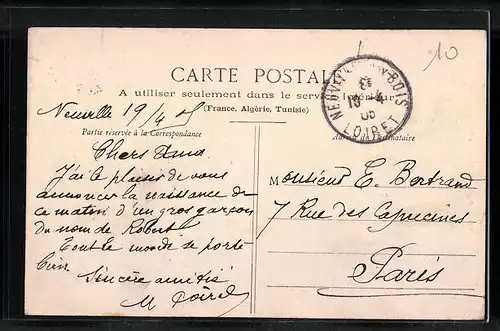 10
CARTE POSTALE
A utiliser seulement dans le service intérieur
(France, Algérie, Tunisie)
NEUVILLE BOIS
LOIRET
Neuville 19/4 05
Partie réservée à la Correspondance
Chers Amis
J'ai le plaisir de vous
annoncer la naissance de
ce matin d'un gros garçon
du nom de Robert
Tout le monde se porte
bien
Sincère amitié
M
Monsieur E. Bertrand
7 Rue des Capucines
Paris